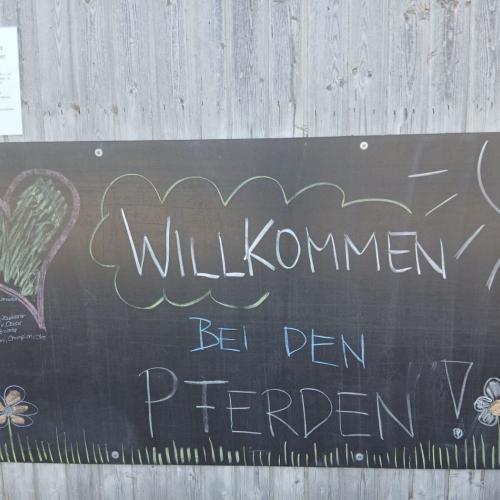 WILLKOMMEN
BEI DEN
PFERDEN!